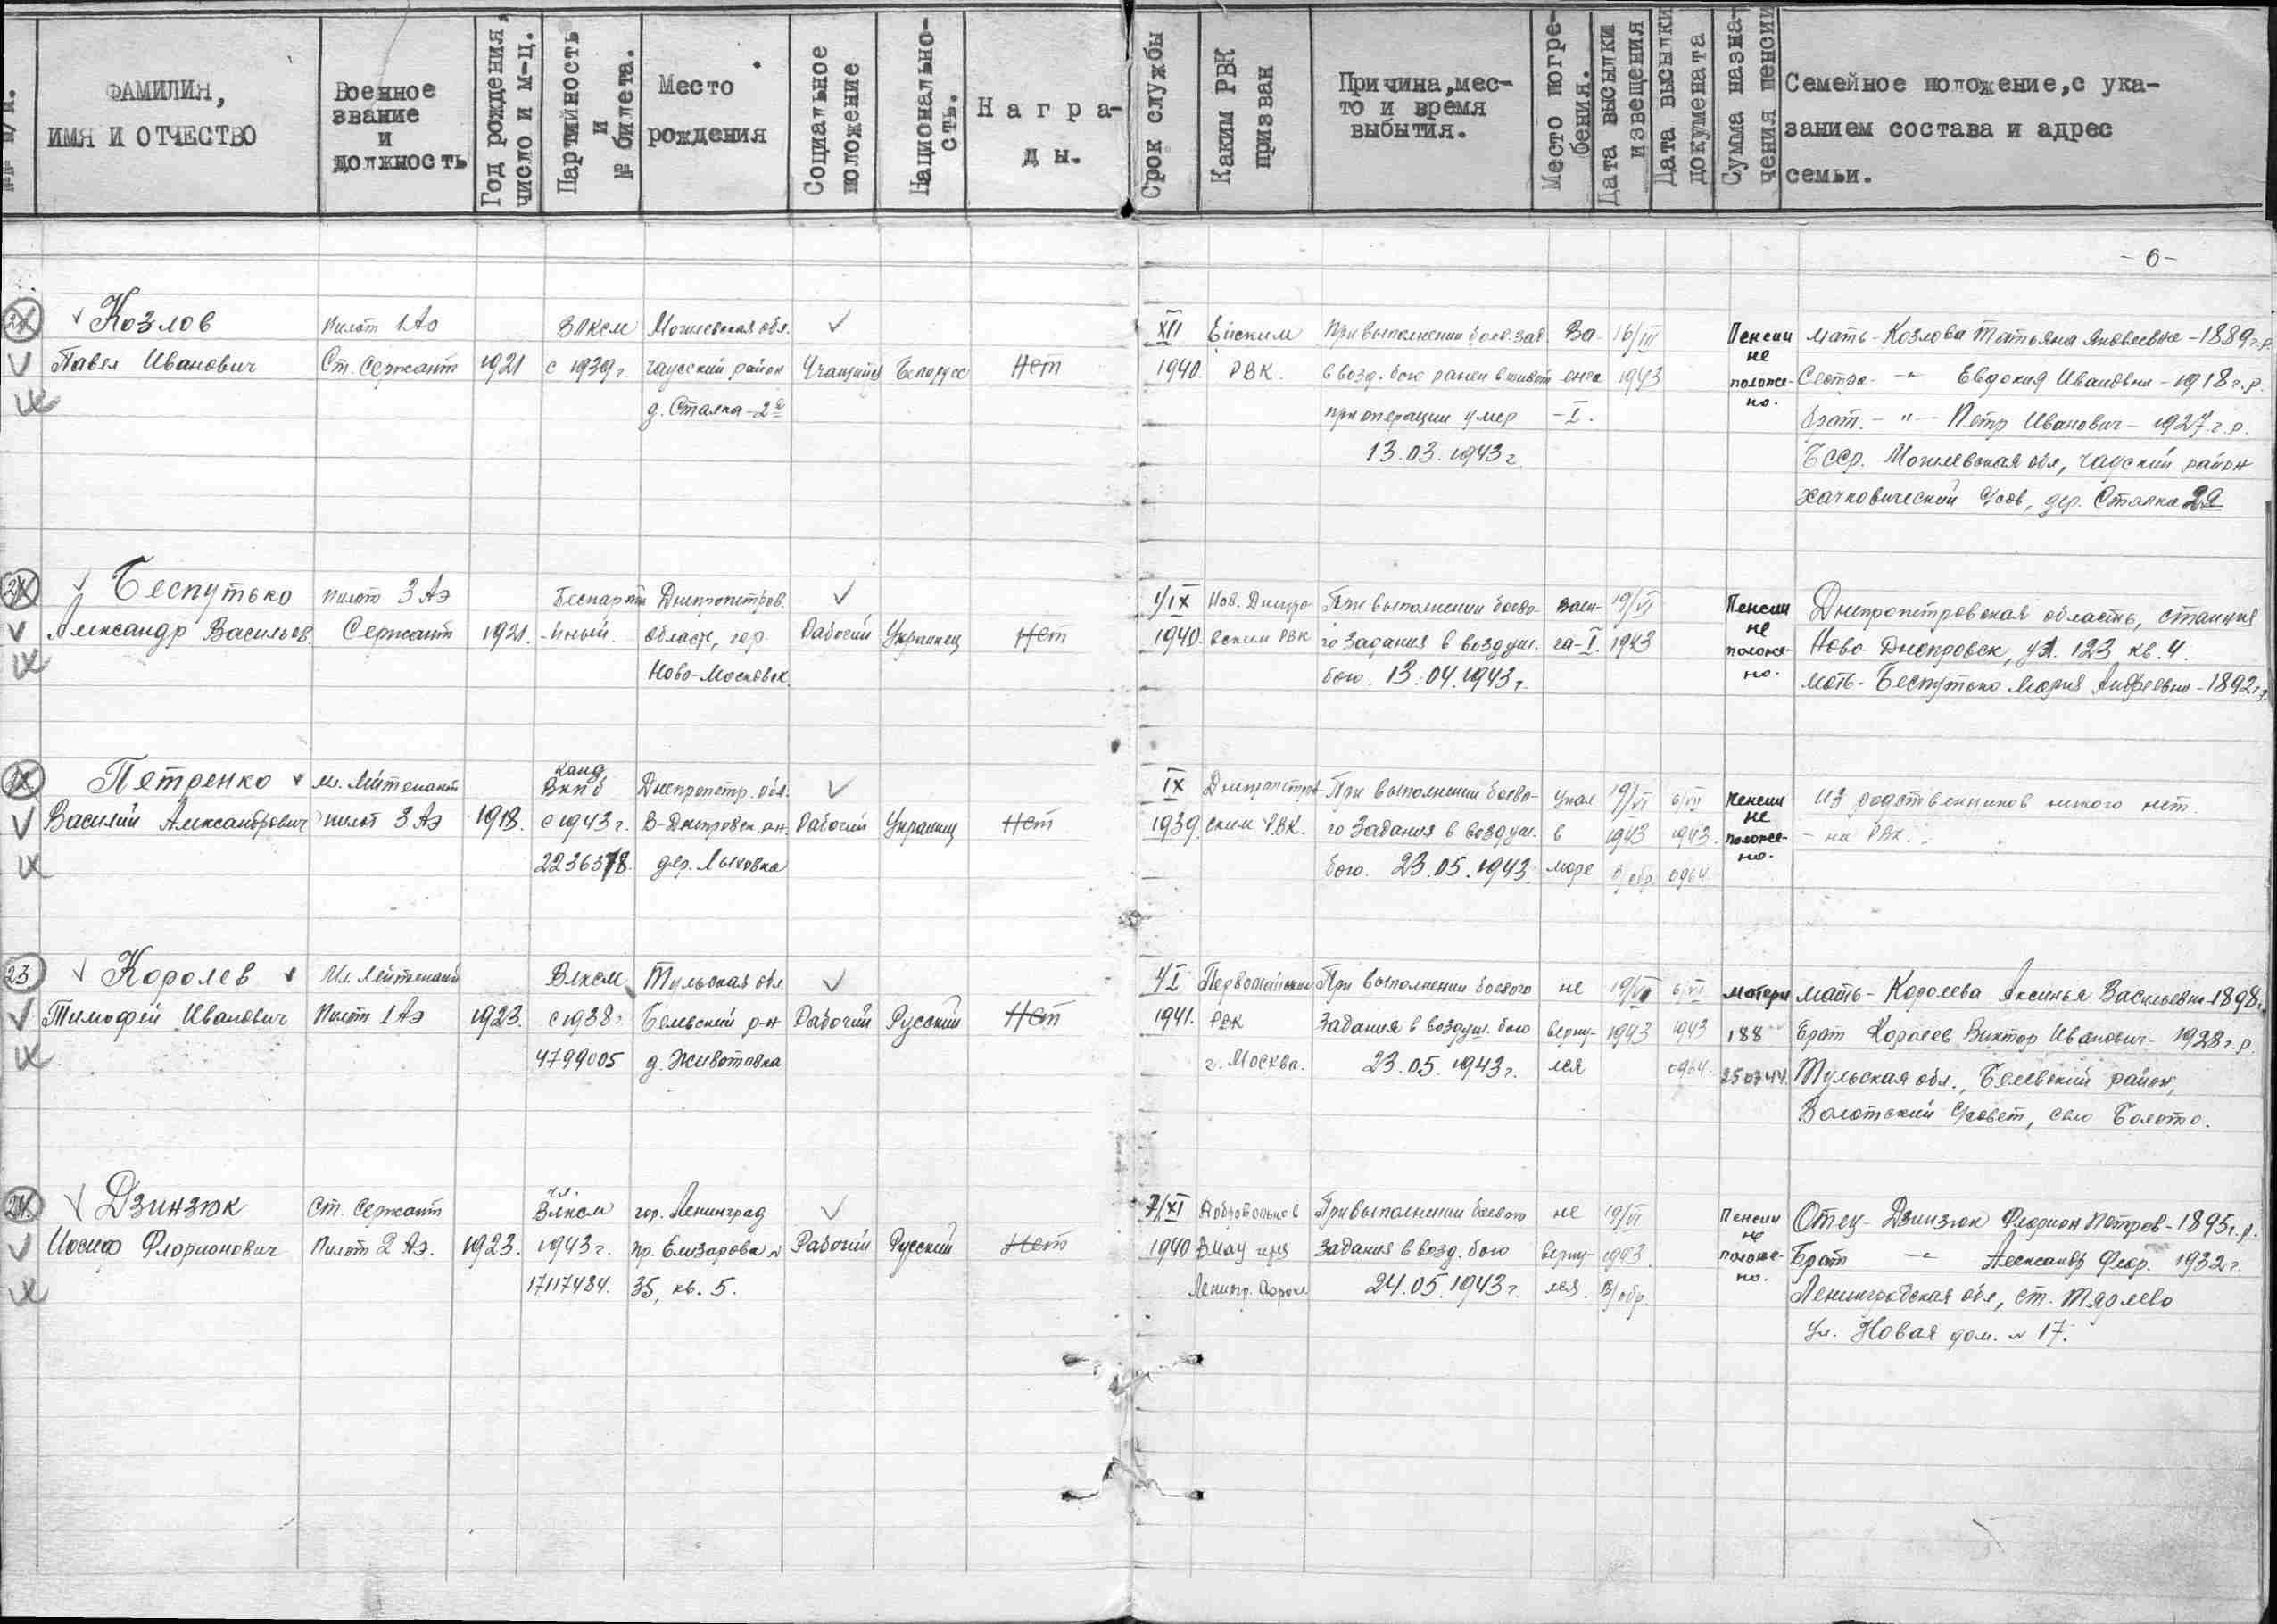 №№ п/п.
ФАМИЛИЯ,
ИМЯ И ОТЧЕСТВО
Военное
звание
и
должность
Год рождения,
число и м-ц.
Партийность
и
№ билета.
Место
рождения
Социальное
положение
Национально-
сть.
Награ-
ды.
Срок службы
Каким РВК
призван
Причина, мес-
то и время
выбытия.
Место погре-
бения.
Дата высылки
извещения
Дата высылки
документа
Сумма назна-
чения пенсии
Семейное положение, с ука-
занием состава и адрес
семьи.
-6-
Козлов Пилот 1 Аэ ВЛКСМ Могилевская обл. XII Ейским При выполнении боев. зад. Ва- 16/III Пенсии мать - Козлова Татьяна Яковлевна - 1889 г.р.
Павел Иванович Ст. Сержант 1921 с 1939 г. Чаусский район Учащийся Белорусс Нет 1940. РВК. в возд. бою ранен в живот енга 1943 не положе- Сестра - " Евдокия Ивановна - 1918 г.р.
д. Сталка-2я при операции умер -I. но. брат. - " - Петр Иванович - 1927 г.р.
13.03.1943 г. БССР. Могилевская обл, Чауский район
с/сов, дер. Сталка 2я
Беспутько пилот 3 Аэ Беспартий Днепропетров. 1/IX Нов. Днепро- При выполнении боево- Ваен- 19/VI Пенсии Днепропетровская область, станция
Александр Васильев. Сержант 1921. -йный. область, гор. Рабочий Украинец Нет 1940. вским РВК го задания в воздуш. га-I. 1943 не положе- Ново-Днепровск, ул. 123 кв. 4.
Ново-Московск. бою. 13.04.1943 г. но. мать - Беспутько Мария Андреевна - 1892 г.р.
Петренко мл. Лйтенант канд ВКПб Днепропетр. обл. IX Днепропетров- При выполнении боево- упал 19/VI 6/VII Пенсии из родственников никого нет
Василий Александрович пилот 3 Аэ 1918. с 1943 г. В-Днепровск. р-н. Рабочий Украинец Нет 1939. ским РВК. го задания в воздуш. в 1943 1943. не положе- - на РВК.
2236378. дер. Лиховка бою. 23.05.1943. море в/обр. 0964. но.
23. Королев Мл. Лейтенант ВЛКСМ Тульская обл 1/I Первомайским При выполнении боевого не 19/VI 6/VI Матери мать - Королева Аксинья Васильевна 1898.
Тимофей Иванович Пилот 1 Аэ 1923. с 1938 г. Белевский р-н Рабочий Русский Нет 1941. РВК задания в воздуш. бою верну- 1943 1943 188 Брат Королев Виктор Иванович - 1928 г.р.
4799005 д. Животовка г. Москва. 23.05.1943 г. лся 0964. 250744. Тульская обл., Белевский район,
Болотский с/совет, село Болото.
24. Дзинзюк Ст. Сержант чл. ВЛКСМ гор. Ленинград 7/XI Добровольно в При выполнении боевого не 19/VI Пенсии Отец - Дзинзюк Флорион Петров - 1895 г.р.
Иосиф Флорионович Пилот 2 Аэ. 1923. 1943 г. пр. Елизарова № Рабочий Русский Нет 1940 ВМАУ через задания в возд. бою верну- 1943. не положе- Брат - " Александр Флор. 1932 г.
17117484. 35, кв. 5. Ленингр. Аэрокл 24.05.1943 г. лся. в/обр. но. Ленинградская обл, ст. Тярлево
ул. Новая дом. № 17.